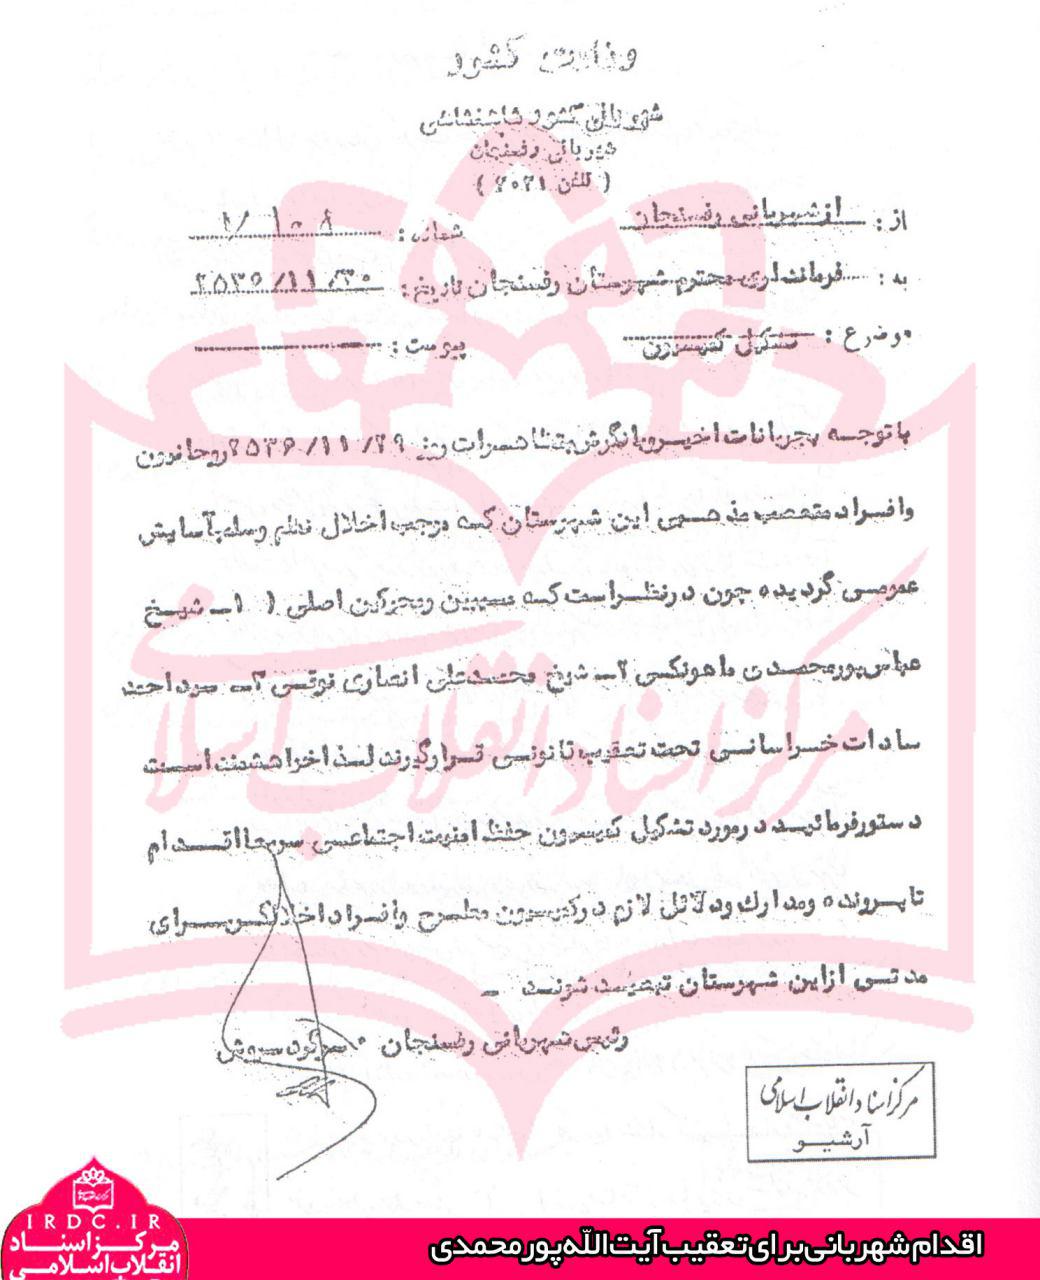 وزارت کشور
شهربانی کشور شاهنشاهی
شهربانی رفسنجان
( تلفن ۲۰۲۱ )
از : از شهربانی رفسنجان شماره :
به : فرمانداری محترم شهرستان رفسنجان تاریخ : ۲۵۳۶/۱۱/۳۰
موضوع : تشکیل کمیسیون پیوست :
با توجه بجریانات اخیر و بانگرش بتظاهرات روز ۲۵۳۶/۱۱/۲۹ روحانیون
و افراد متعصب مذهبی این شهرستان که موجب اخلال نظم و سلب آسایش
عمومی گردیده چون در نظر است که مسببین و محرکین اصلی ( ۱ـ شیخ
عباس پورمحمدی ماهونکی ۲ـ شیخ محمدعلی انصاری ۳ـ سید احمد
سادات خراسانی تحت تعقیب قانونی قرار گیرند لذا خواهشمند است
دستور فرمائید در مورد تشکیل کمیسیون حفظ امنیت اجتماعی سریعا اقدام
تا پرونده و مدارک و دلائل لازم در کمیسیون مطرح و افراد اخلالگر برای
مدتی از این شهرستان تبعید شوند ـ
رئیس شهربانی رفسنجان
مرکز اسناد انقلاب اسلامی
آرشیو
مرکز اسناد انقلاب اسلامی
IRDC.IR
مرکز اسناد
انقلاب اسلامی
اقدام شهربانی برای تعقیب آیت‌الله پورمحمدی